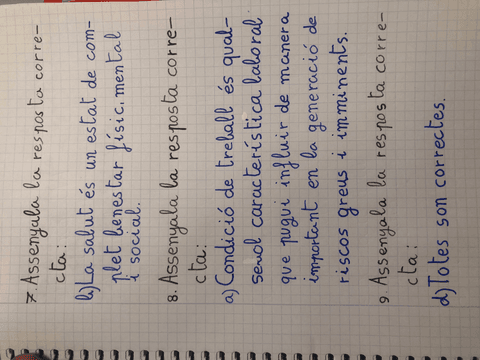 7. Assenyala la resposta corre-
cta:
b) La salut és un estat de com-
plet benestar físic, mental
i social.
8. Assenyala la resposta corre-
cta:
a) Condició de treball és qual-
sevol característica laboral
que pugui influir de manera
important en la generació de
riscos greus i imminents.
9. Assenyala la resposta corre-
cta:
d) Totes son correctes.